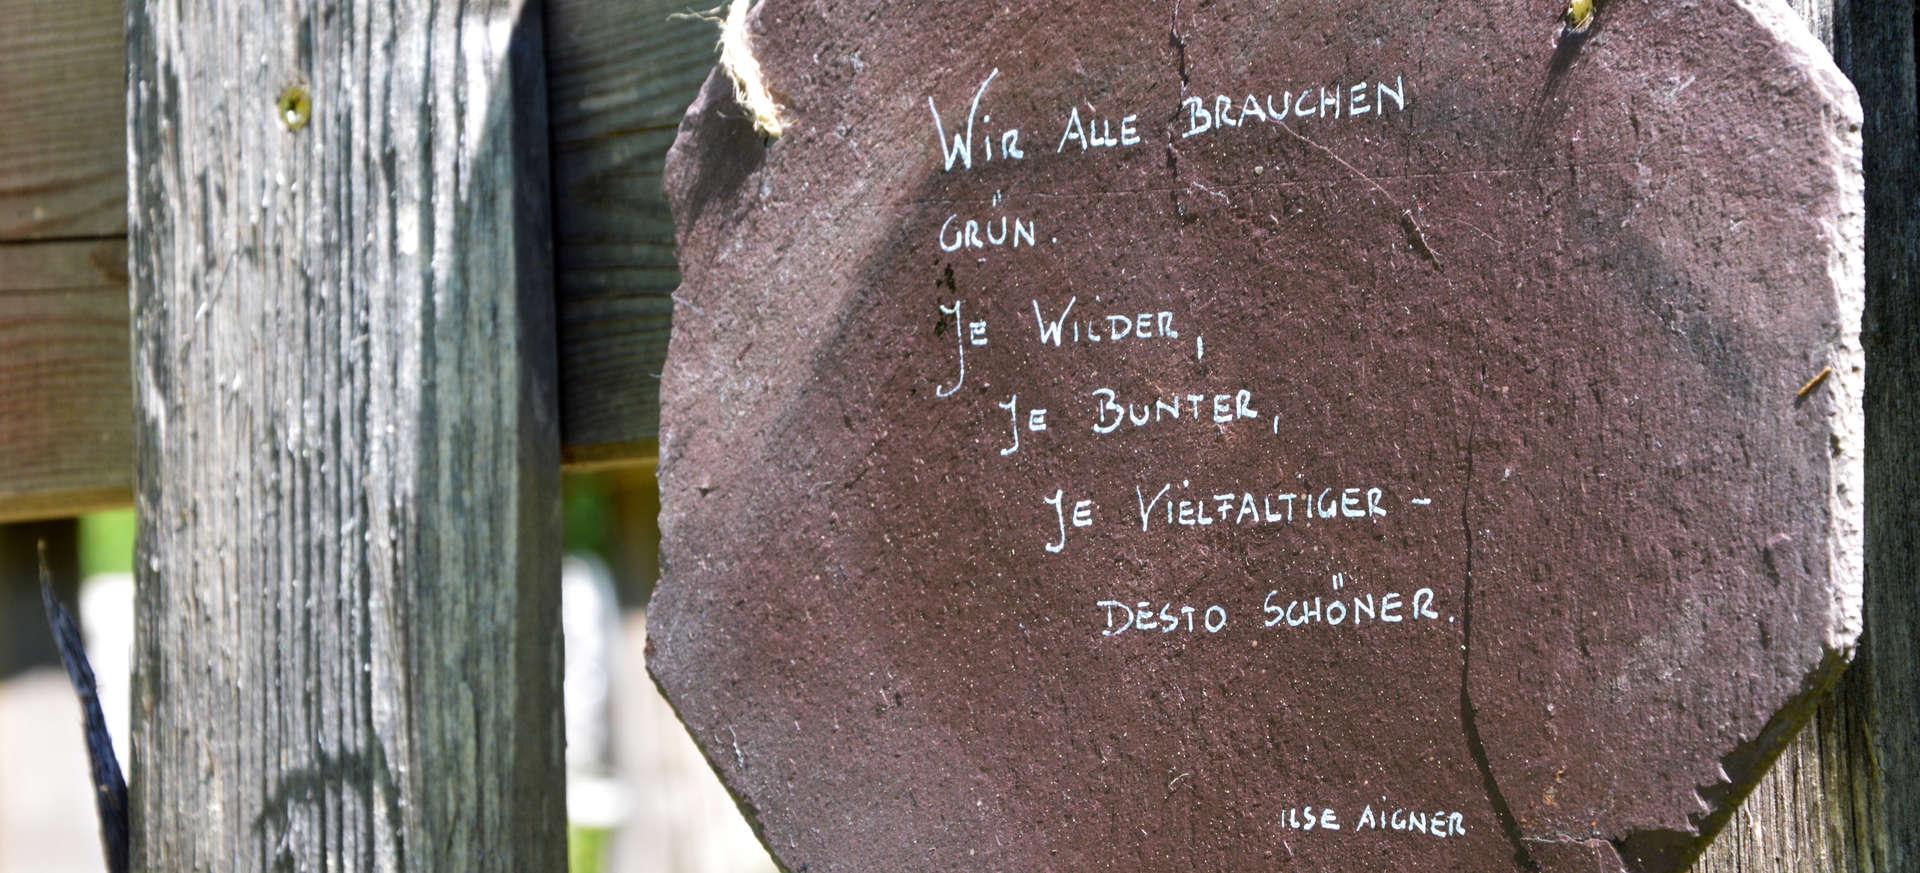 Wir ALLE BRAUCHEN
GRÜN.
Je WILDER,
Je BUNTER,
Je VIELFALTIGER -
DESTO SCHÖNER.
ILSE AIGNER